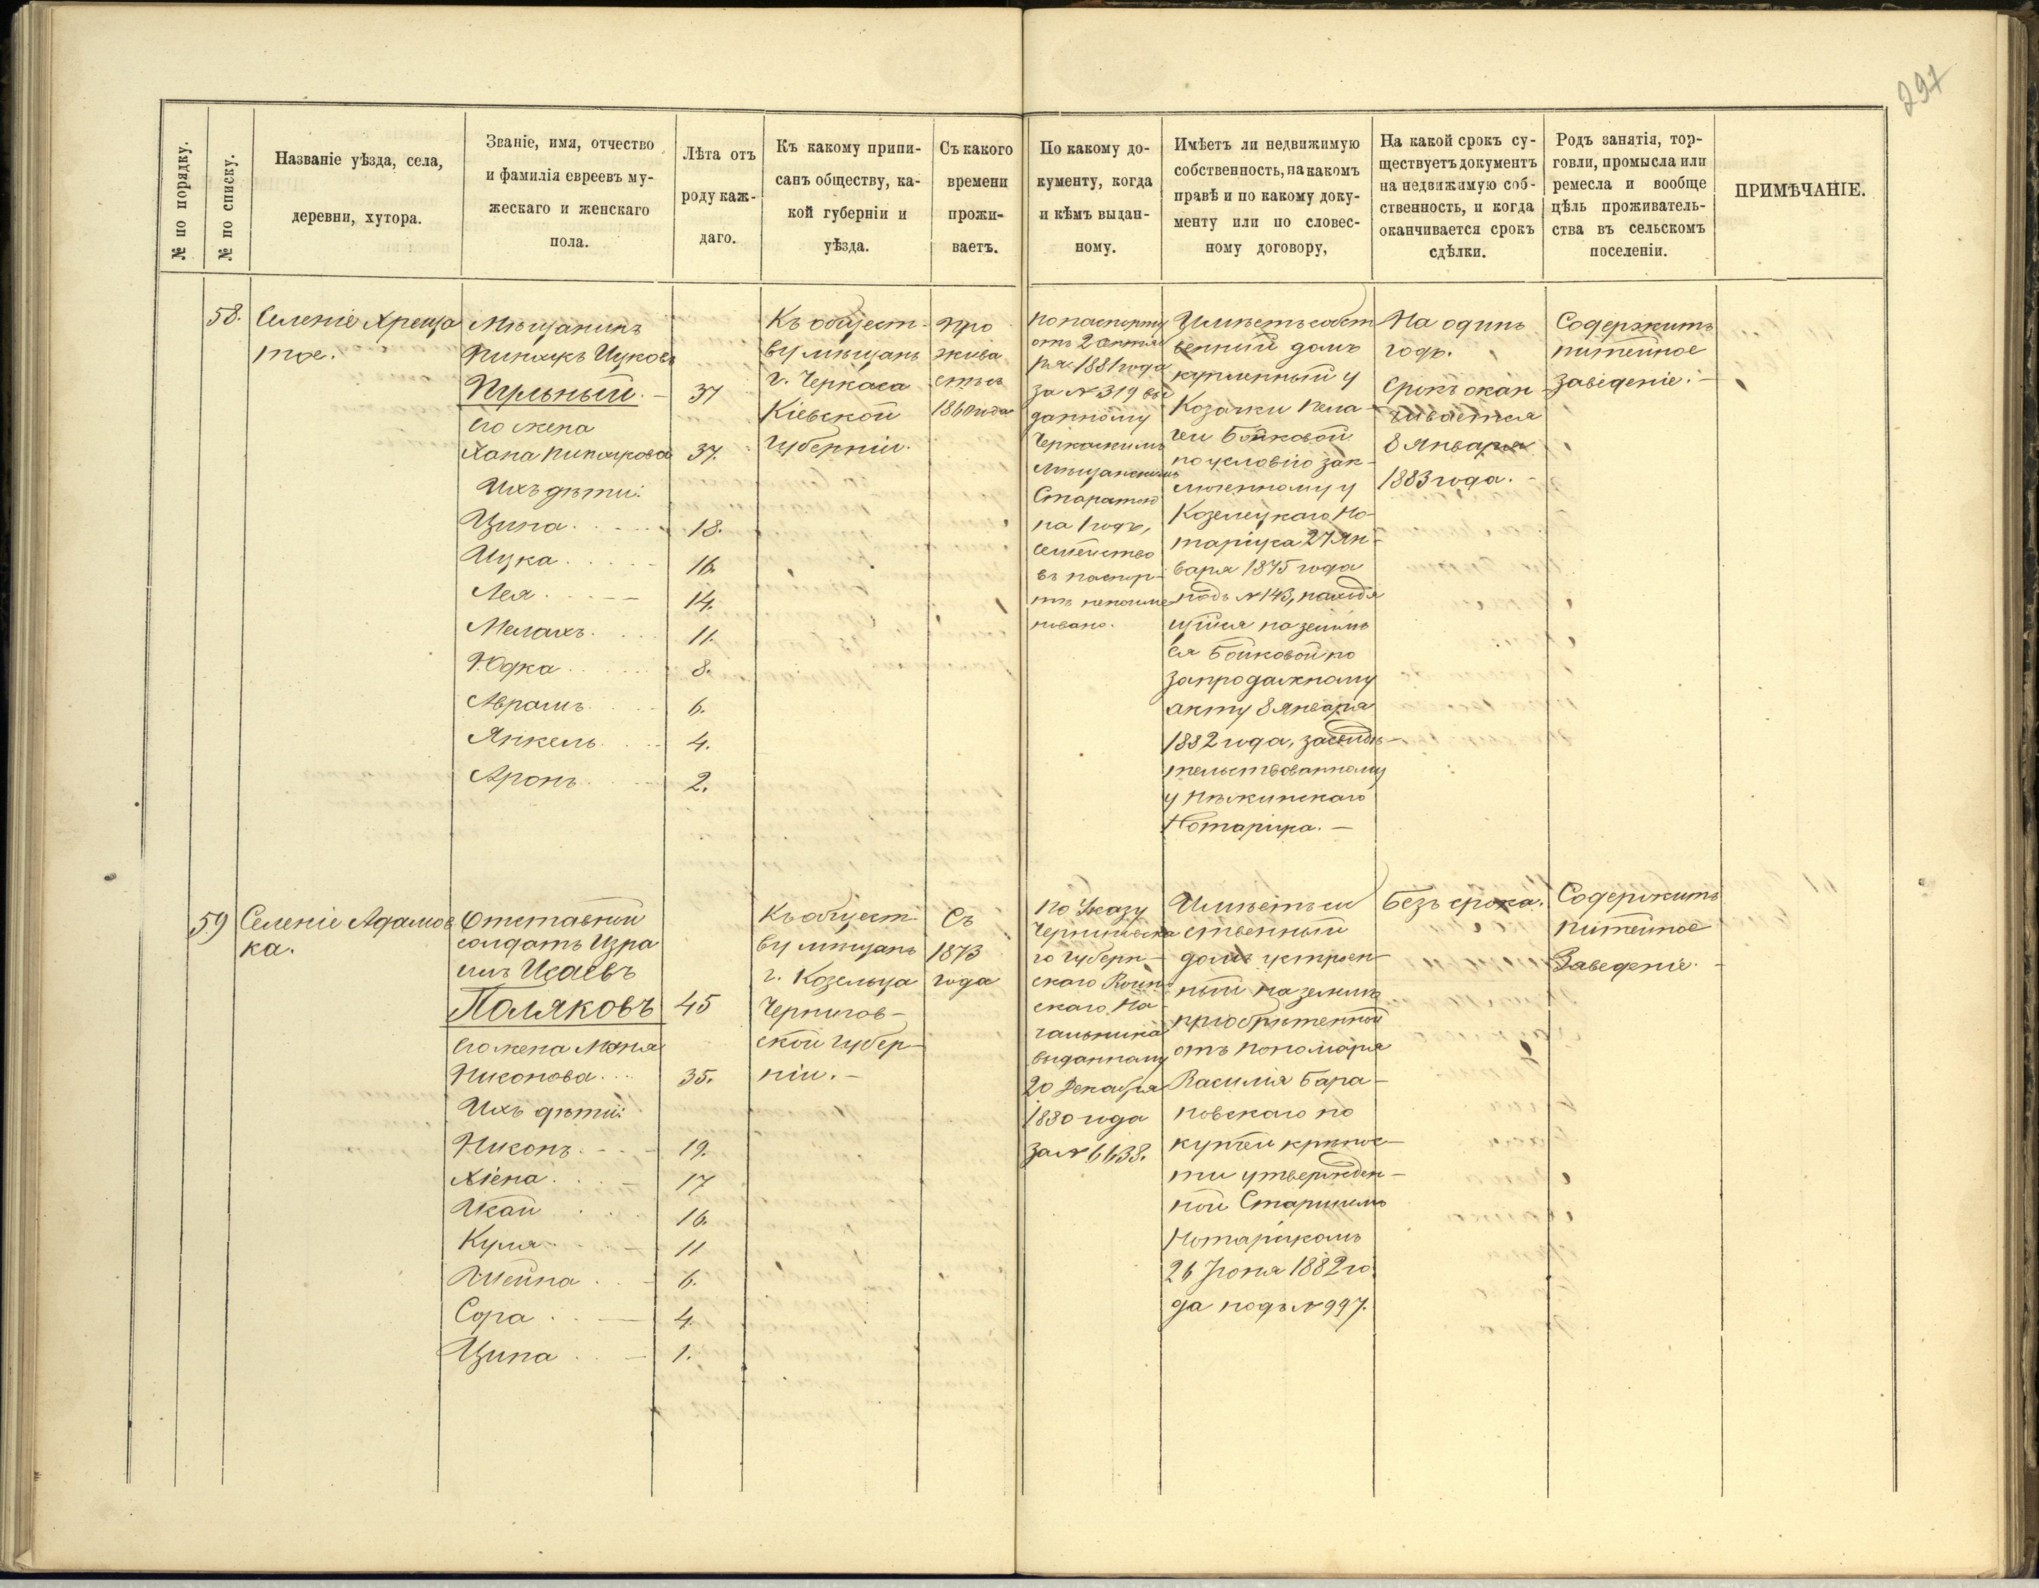 297
№ по порядку.
№ по списку.
Названіе уѣзда, села,
деревни, хутора.
Званіе, имя, отчество
и фамилія евреевъ му-
жескаго и женскаго
пола.
Лѣта отъ
роду каж-
даго.
Къ какому припи-
санъ обществу, ка-
кой губерніи и
уѣзда.
Съ какого
времени
прожи-
ваетъ.
По какому до-
кументу, когда
и кѣмъ выдан-
ному.
Имѣетъ ли недвижимую
собственность, на какомъ
правѣ и по какому доку-
менту или по словес-
ному договору,
На какой срокъ су-
ществуетъ документъ
на недвижимую соб-
ственность, и когда
оканчивается срокъ
сдѣлки.
Родъ занятія, тор-
говли, промысла или
ремесла и вообще
цѣль проживатель-
ства въ сельскомъ
поселеніи.
ПРИМѢЧАНІЕ.
58.
Селеніе Хреща
тое.
Мѣщанинъ
Пинхусъ Ицковъ
Пульный. —
его жена
Хана
Ихъ дѣти:
Ципа
Ицка
Лея
Мелахъ
Юдка
Абрамъ
Янкель
Аронъ
37
37.
18.
16.
14.
11.
8.
6.
4.
2.
Къ общест-
ву мѣщанъ
г. Черкаса
Кіевской
Губерніи.
Про
жива
етъ съ
1860 года
по паспорту
отъ 2 Октяб
ря 1881 года
за № 319 вы
данному
Черкаскимъ
Мѣщанскимъ
Старостою
на 1 годъ,
семейство
въ паспор-
тѣ непоиме
новано.
Имѣетъ собст
венный домъ
купленный у
Козачки Пела-
геи Бойковой
по условію зак-
люченному у
Козелецкаго Но-
таріуса 27 Ян-
варя 1875 года
подъ № 143, находя
щійся на землѣ
ея Бойковой по
запродажному
акту 8 Января
1882 года, засвидѣ-
тельствованному
у Нѣжинскаго
Нотаріуса. —
На одинъ
годъ.
Срокъ окан-
чивается
8 Января
1883 года. —
Содержитъ
питейное
заведеніе. —
59
Селеніе Адамов
ка.
Отставной
солдатъ Изра
иль Исаевъ
Поляковъ
его жена
Нисонова
Ихъ дѣти:
Нисонъ
Хіена
Куля
Шейна
Сора
Ципа
45
35.
19.
17
16.
11
6.
4.
1.
Къ общест
ву мѣщанъ
г. Козельца
Чернигов-
ской Губер-
ніи. —
Съ
1873
года
по Указу
Черниговска
го Губерн-
скаго Воин
скаго На-
чальника
выданному
20 Декабря
1880 года
за № 6638.
Имѣетъ со
ственный
домъ устроен-
ный на землѣ
пріобрѣтенной
отъ пономаря
Василія Бара-
новскаго по
купчей крѣпос-
ти утвержден-
ной Старшимъ
Нотаріусомъ
26 Іюня 1882 го
да подъ № 997.
Безъ срока.
Содержитъ
питейное
Заведеніе. —